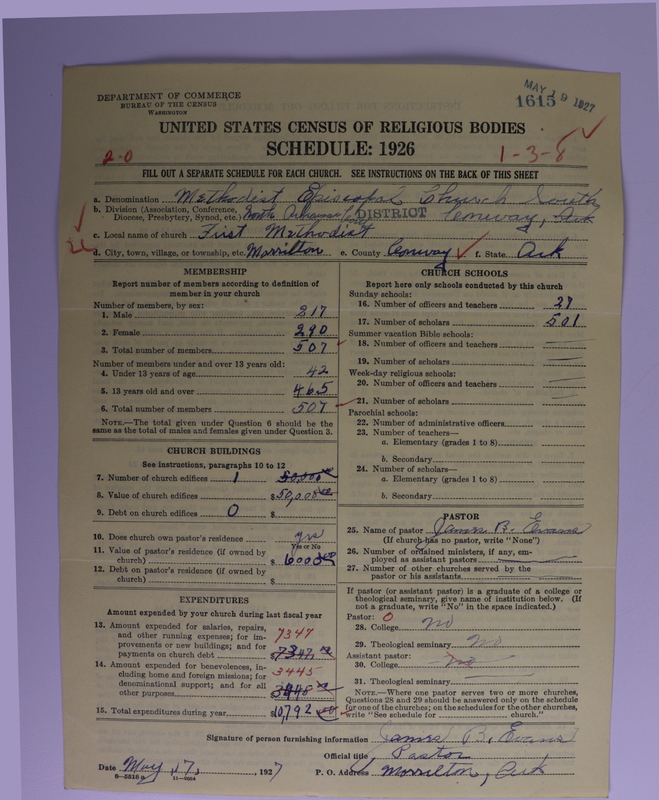 DEPARTMENT OF COMMERCE
BUREAU OF THE CENSUS
WASHINGTON
MAY 19 1927
1615
UNITED STATES CENSUS OF RELIGIOUS BODIES
SCHEDULE: 1926
2-0
1-3-8
FILL OUT A SEPARATE SCHEDULE FOR EACH CHURCH. SEE INSTRUCTIONS ON THE BACK OF THIS SHEET
a. Denomination Methodist Episcopal Church South
b. Division (Association, Conference, North Arkansas Conf DISTRICT Conway, Ark
Diocese, Presbytery, Synod, etc.
c. Local name of church First Methodist
d. City, town, village, or township, etc. Morrilton e. County Conway f. State Ark
MEMBERSHIP
Report number of members according to definition of
member in your church
Number of members, by sex:
1. Male 217
2. Female 290
3. Total number of members 507
Number of members under and over 13 years old:
4. Under 13 years of age 42
5. 13 years old and over 465
6. Total number of members 507
NOTE.—The total given under Question 6 should be
same as the total of males and females given under Question 3.
CHURCH BUILDINGS
See instructions, paragraphs 10 to 12
7. Number of church edifices 1 50,000
8. Value of church edifices $50,000
9. Debt on church edifices 0 $
10. Does church own pastor's residence yes
Yes or No
11. Value of pastor's residence (if owned by
church) $ 6000
12. Debt on pastor's residence (if owned by
church) $
EXPENDITURES
Amount expended by church during last fiscal year
13. Amount expended for salaries, repairs,
and other running expenses; for im- 7347
provements or new buildings; and for
payments on church debt $7347
14. Amount expended for benevolences, in- 3445
cluding home and foreign missions; for
denominational support; and for all
other purposes 3448
15. Total expenditures during year $10,792
CHURCH SCHOOLS
Report here only schools conducted by this church
Sunday schools:
16. Number of officers and teachers 27
17. Number of scholars 501
Summer vacation Bible schools:
18. Number of officers and teachers
19. Number of scholars
Week-day religious schools:
20. Number of officers and teachers
21. Number of scholars
Parochial schools:
22. Number of administrative officers
23. Number of teachers—
a. Elementary (grades 1 to 8)
b. Secondary
24. Number of scholars—
a. Elementary (grades 1 to 8)
b. Secondary
PASTOR
25. Name of pastor James B. Evans
(If church has no pastor, write "None")
26. Number of ordained ministers, if any, em-
ployed as assistant pastors
27. Number of other churches served by the
pastor or his assistants
If pastor (or assistant pastor) is a graduate of a college or
theological seminary, give name of institution below. (If
not a graduate, write "No" in the space indicated.)
Pastor: 0
28. College no
29. Theological seminary no
Assistant pastor:
30. College no
31. Theological seminary
NOTE.—Where one pastor serves two or more churches,
Questions 28 and 29 should be answered only on the schedule
for one of the churches; on the schedules for the other churches,
write "See schedule for church."
Signature of person furnishing information James B. Evans
Official title Pastor
Date May, 17, 1927 P. O. Address Morrilton, Ark
8-5518a 11-2524